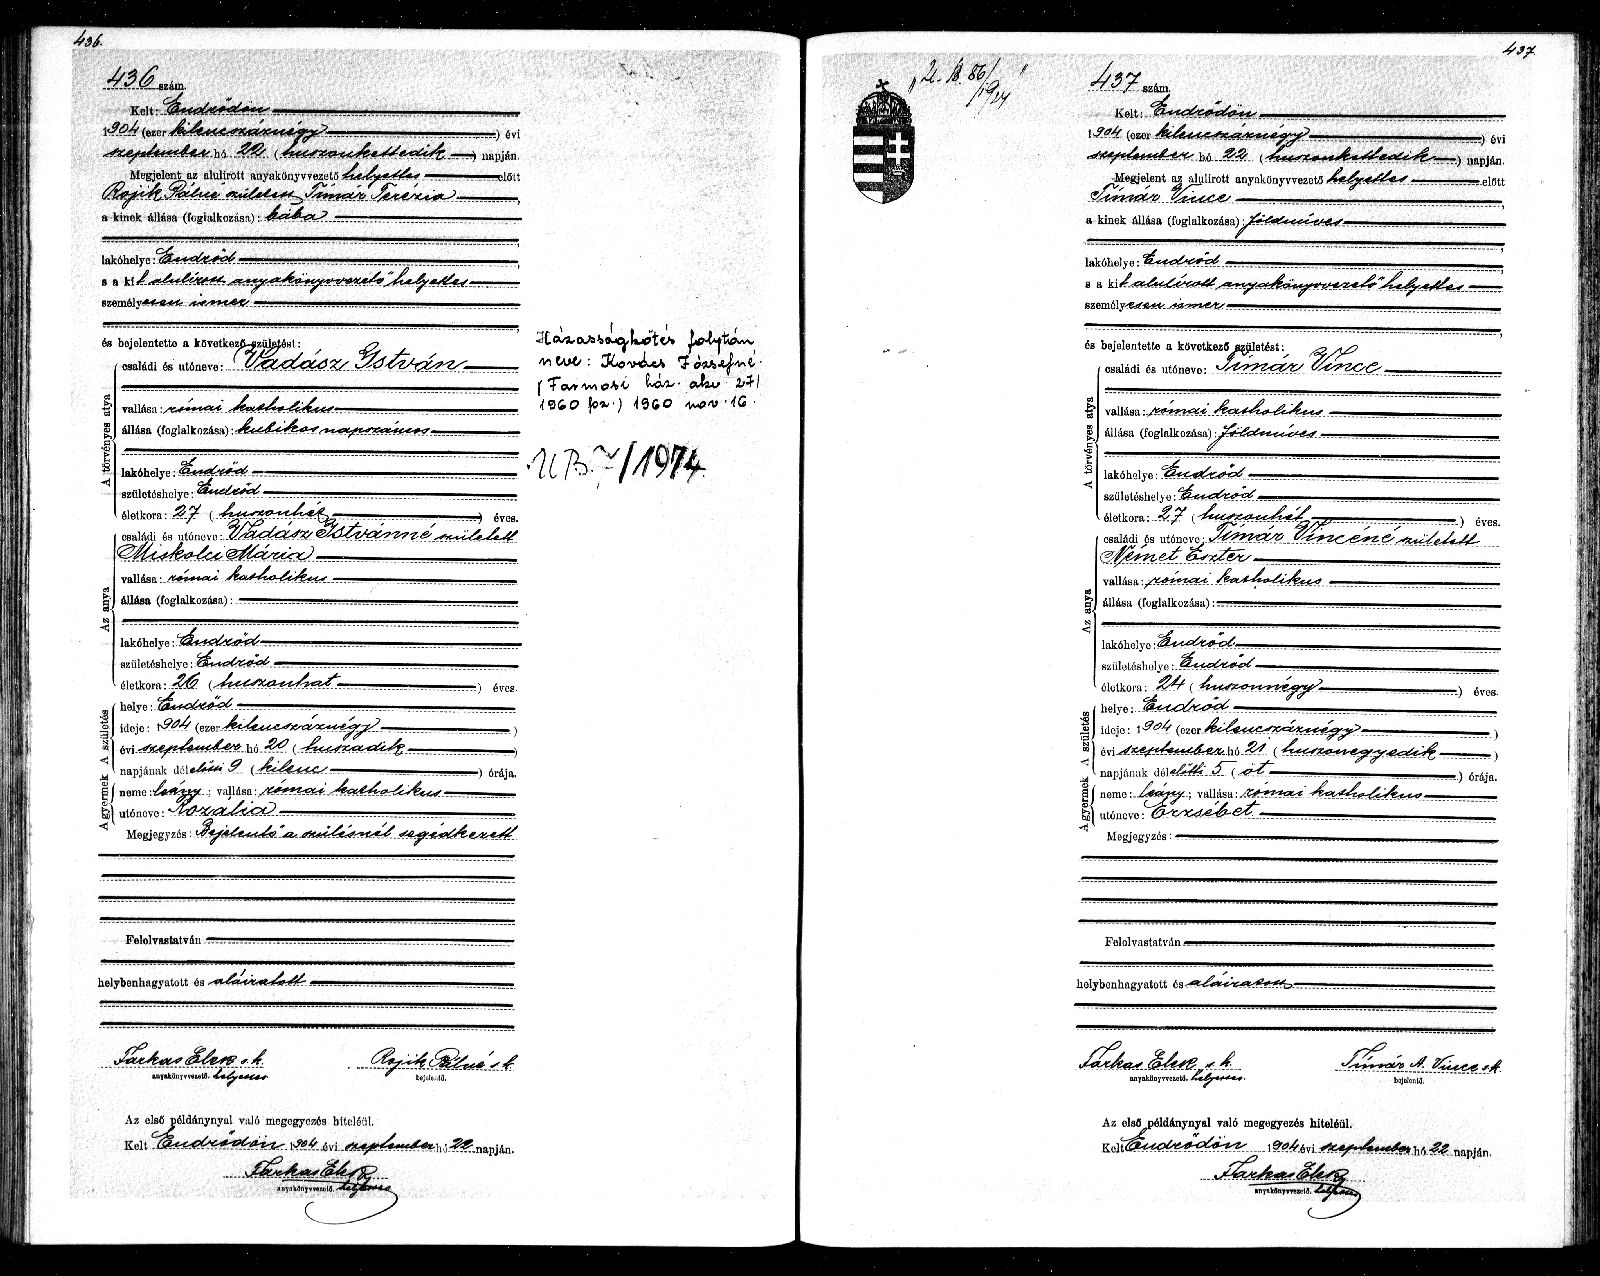 436.
436 szám.
Kelt: Endrődön
1904 (ezer kilencszáznégy) évi
szeptember hó 22 (huszonkettedik) napján.
Megjelent az alulirott anyakönyvvezető helyettes előtt
Rojik Pálné született Tímár Terézia,
a kinek állása (foglalkozása): bába
lakóhelye: Endrőd,
s a kit alulírott anyakönyvvezető helyettes
személyesen ismer,
és bejelentette a következő születést:
A törvényes atya
családi és utóneve: Vadász István
vallása: római katholikus
állása (foglalkozása): kubikos napszámos
lakóhelye: Endrőd
születéshelye: Endrőd
életkora: 27 (huszonhét) éves.
Az anya
családi és utóneve: Vadász Istvánné született
Miskolci Mária
vallása: római katholikus
állása (foglalkozása):
lakóhelye: Endrőd
születéshelye: Endrőd
életkora: 26 (huszonhat) éves.
A születés
helye: Endrőd
ideje: 1904 (ezer kilencszáznégy)
évi szeptember hó 20 (huszadik)
napjának délelőtti 9 (kilenc) órája.
A gyermek
neme: leány; vallása: római katholikus
utóneve: Rozália
Megjegyzés: Bejelentő a szülésnél segédkezett
Felolvastatván
helybenhagyatott és aláiratott
Farkas Elek s.k. Rojik Pálné s.k.
anyakönyvvezető. helyettes bejelentő.
Az első példánynyal való megegyezés hiteléül.
Kelt Endrődön 1904 évi szeptember hó 22 napján.
Farkas Elek
anyakönyvvezető. helyettes
Házasságkötés folytán
neve: Kovács Józsefné
(Farmosi ház. akv 27/
1960 fsz.) 1960 nov. 16.
/1974
437.
1924
437 szám.
Kelt: Endrődön
1904 (ezer kilencszáznégy) évi
szeptember hó 22 (huszonkettedik) napján.
Megjelent az alulirott anyakönyvvezető helyettes előtt
Tímár Vince,
a kinek állása (foglalkozása): földmíves
lakóhelye: Endrőd,
s a kit alulírott anyakönyvvezető helyettes
személyesen ismer,
és bejelentette a következő születést:
A törvényes atya
családi és utóneve: Tímár Vince
vallása: római katholikus
állása (foglalkozása): földmíves
lakóhelye: Endrőd
születéshelye: Endrőd
életkora: 27 (huszonhét) éves.
Az anya
családi és utóneve: Tímár Vincéné született
Német Eszter
vallása: római katholikus
állása (foglalkozása):
lakóhelye: Endrőd
születéshelye: Endrőd
életkora: 24 (huszonnégy) éves.
A születés
helye: Endrőd
ideje: 1904 (ezer kilencszáznégy)
évi szeptember hó 21 (huszonegyedik)
napjának délelőtti 5 (öt) órája.
A gyermek
neme: leány; vallása: római katholikus
utóneve: Erzsébet
Megjegyzés:
Felolvastatván
helybenhagyatott és aláiratott
Farkas Elek s.k. Tímár A. Vince s.k.
anyakönyvvezető. helyettes. bejelentő.
Az első példánynyal való megegyezés hiteléül.
Kelt Endrődön 1904 évi szeptember hó 22 napján.
Farkas Elek
anyakönyvvezető. helyettes